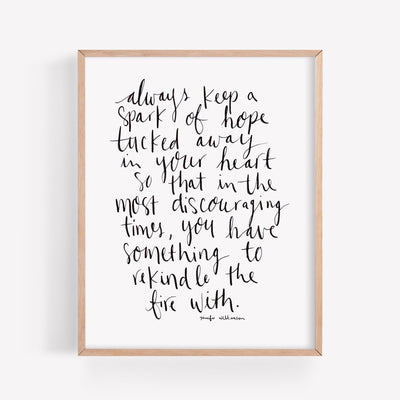 always keep a
spark of hope
tucked away
in your heart
so that in the
most discouraging
times, you have
something to
rekindle the
fire with.